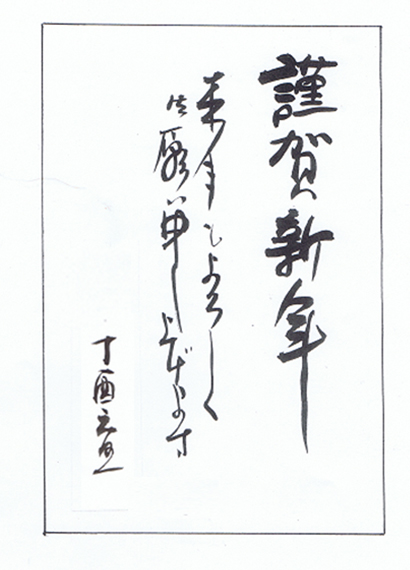 謹賀新年
来年もよろしく
御願い申し上げます
丁酉元旦